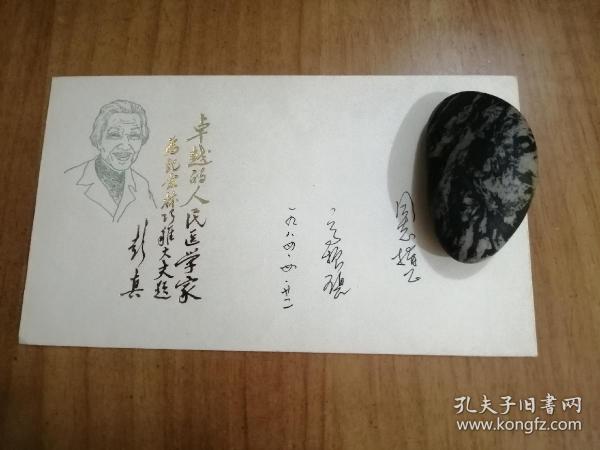 卓越的人民医学家
为纪念林巧稚大夫题
彭真
一九八四·四·廿二
孔夫子旧书网
www.kongfz.com